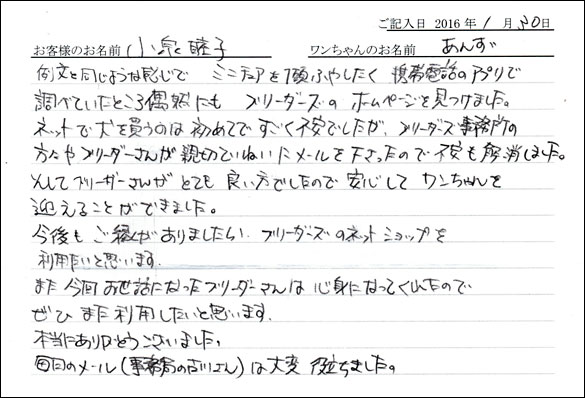 ご記入日 2016年 1月 30日
お客様のお名前 小泉 睦子 ワンちゃんのお名前 あんず
例文と同じような感じで ミニチュアを1頭ふやしたく 携帯電話のアプリで
調べていたところ偶然にも ブリーダーズの ホームページを見つけました。
ネットで犬を買うのは初めてですごく不安でしたが、ブリーダーズ事務所の
方々やブリーダーさんが親切ていねいたメールを下さったので不安も解消しました。
そしてブリーザーさんが とても 良い方でしたので 安心して ワンちゃんを
迎えることができました。
今後も ご縁がありましたら、ブリーダーズのネットショップを
利用たいと思います。
また 今回お世話になったブリーダーさんは 心身になってくれたので
ぜひ また利用したいと思います。
本当にありがとうございました。
毎日のメール(事務局の吉川さん)は大変 役立ちました。